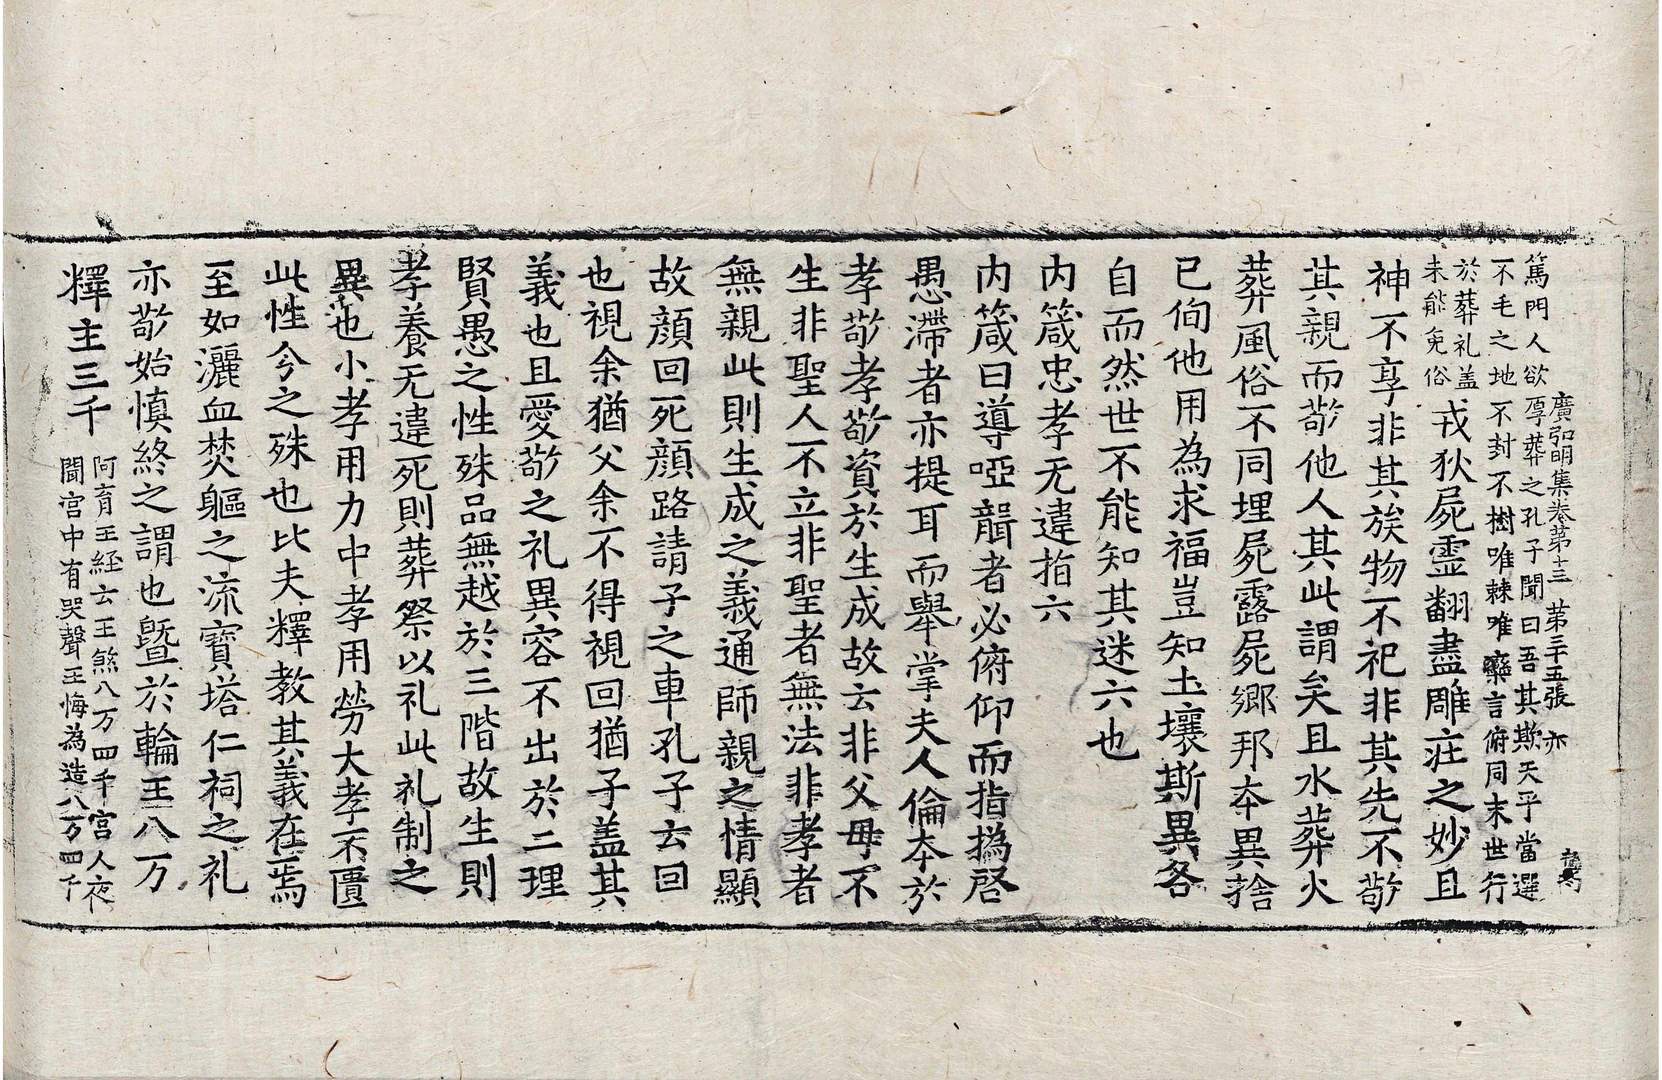 廣弘明集卷第十三 第三十五張 亦
篤門人欲厚葬之孔子聞曰吾其欺天乎當選
不毛之地不封不樹唯棘唯欒言俯同末世行
於葬礼盖
未能免俗
戎狄屍靈翻盡雕庄之妙且
神不享非其族物不祀非其先不敬
其親而敬他人其此謂矣且水葬火
葬風俗不同埋屍露屍郷邦夲異捨
已徇他用為求福豈知圡壤斯異各
自而然世不能知其迷六也
内箴忠孝无違指六
内箴曰導啞聾者必俯仰而指撝啓
愚滯者亦提耳而舉掌夫人倫夲於
孝敬孝敬資於生成故云非父母不
生非聖人不立非聖者無法非孝者
無親此則生成之義通師親之情顯
故顔回死顔路請子之車孔子云回
也視余猶父余不得視回猶子盖其
義也且愛敬之礼異容不出於二理
賢愚之性殊品無越於三階故生則
孝養无違死則葬祭以礼此礼制之
異也小孝用力中孝用勞大孝不匱
此性今之殊也比夫釋教其義在焉
至如灑血焚軀之流寳塔仁祠之礼
亦敬始慎終之謂也曁於輪王八万
釋主三千
阿育王經云王煞八万四千宮人夜
聞宮中有哭聲王悔為造八万四千